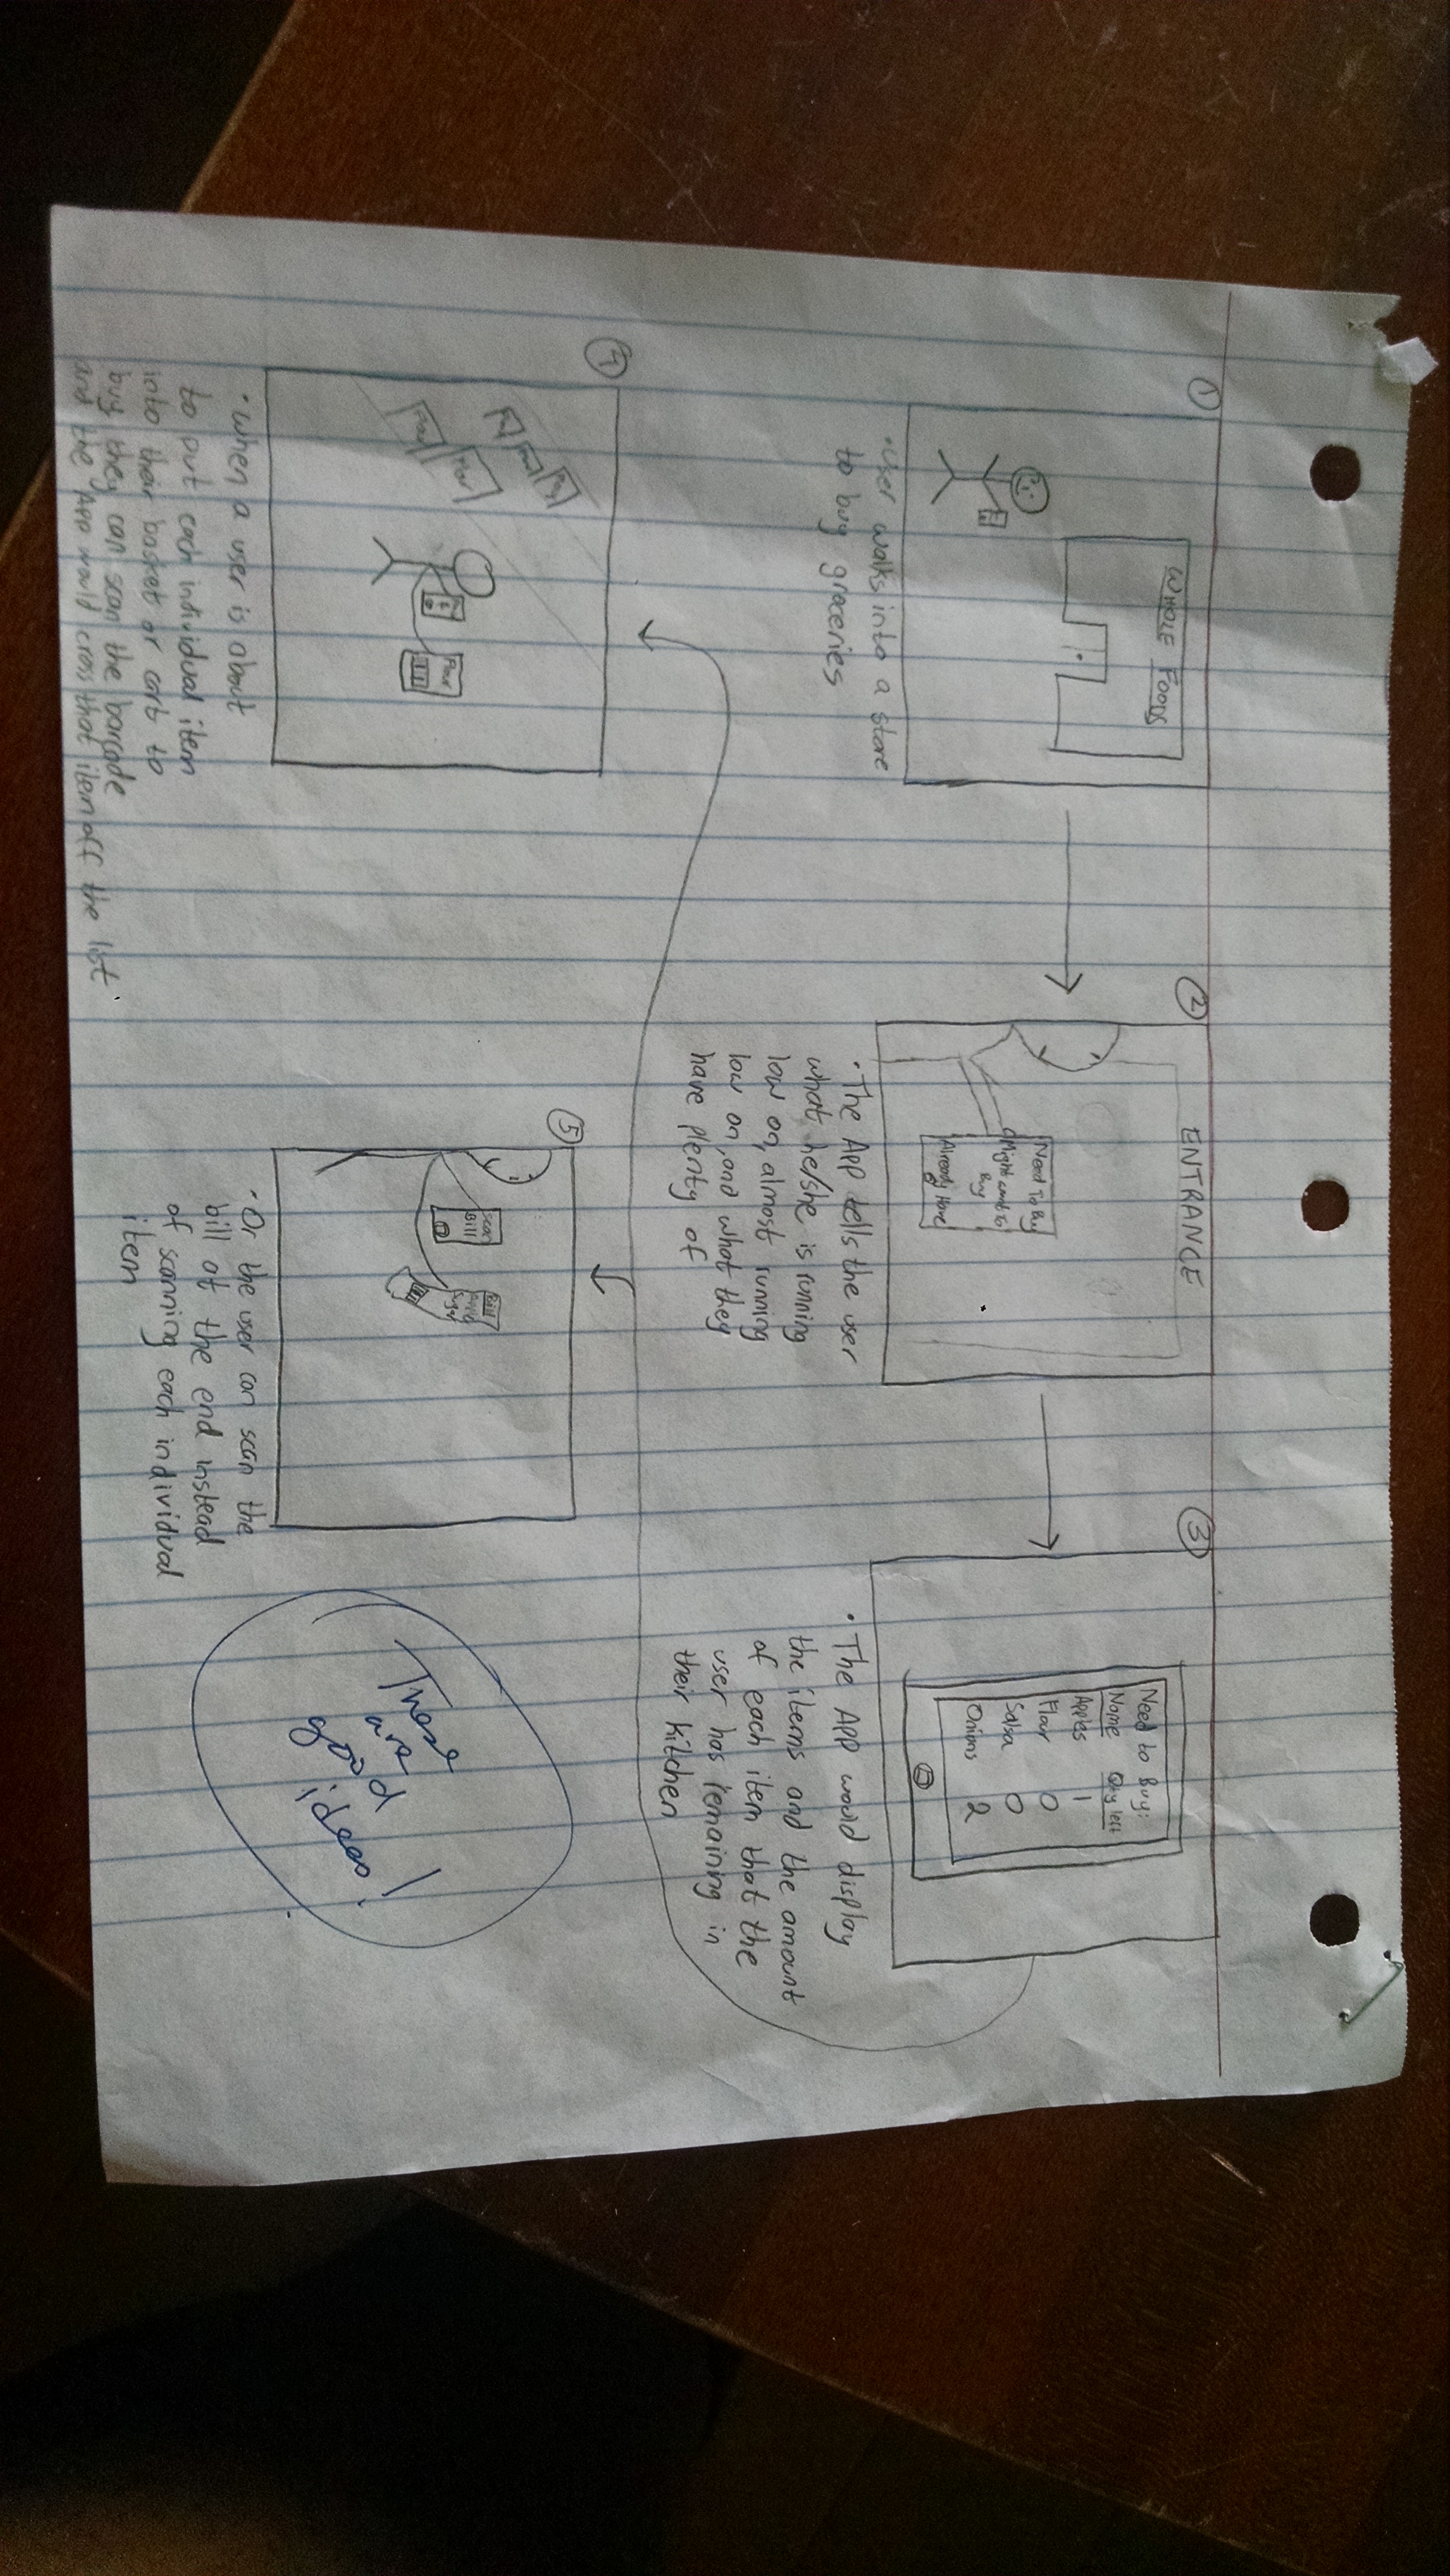 ①
WHOLE FOODS
• User walks into a store
to buy groceries
②
ENTRANCE
Need To Buy
Might want to
Buy
Already Have
• The App tells the user
what he/she is running
low on, almost running
low on, and what they
have plenty of
③
Need to Buy:
Name Qty left
Apples 1
Flour 0
Salsa 0
Onions 2
• The App would display
the items and the amount
of each item that the
user has remaining in
their kitchen
④
Flour
Flour
• when a user is about
to put each individual item
into their basket or cart to
buy they can scan the barcode
and the App would cross that item off the list.
⑤
Scan
Bill
Bill
• Or the user can scan the
bill at the end instead
of scanning each individual
item
These
are
good
ideas!